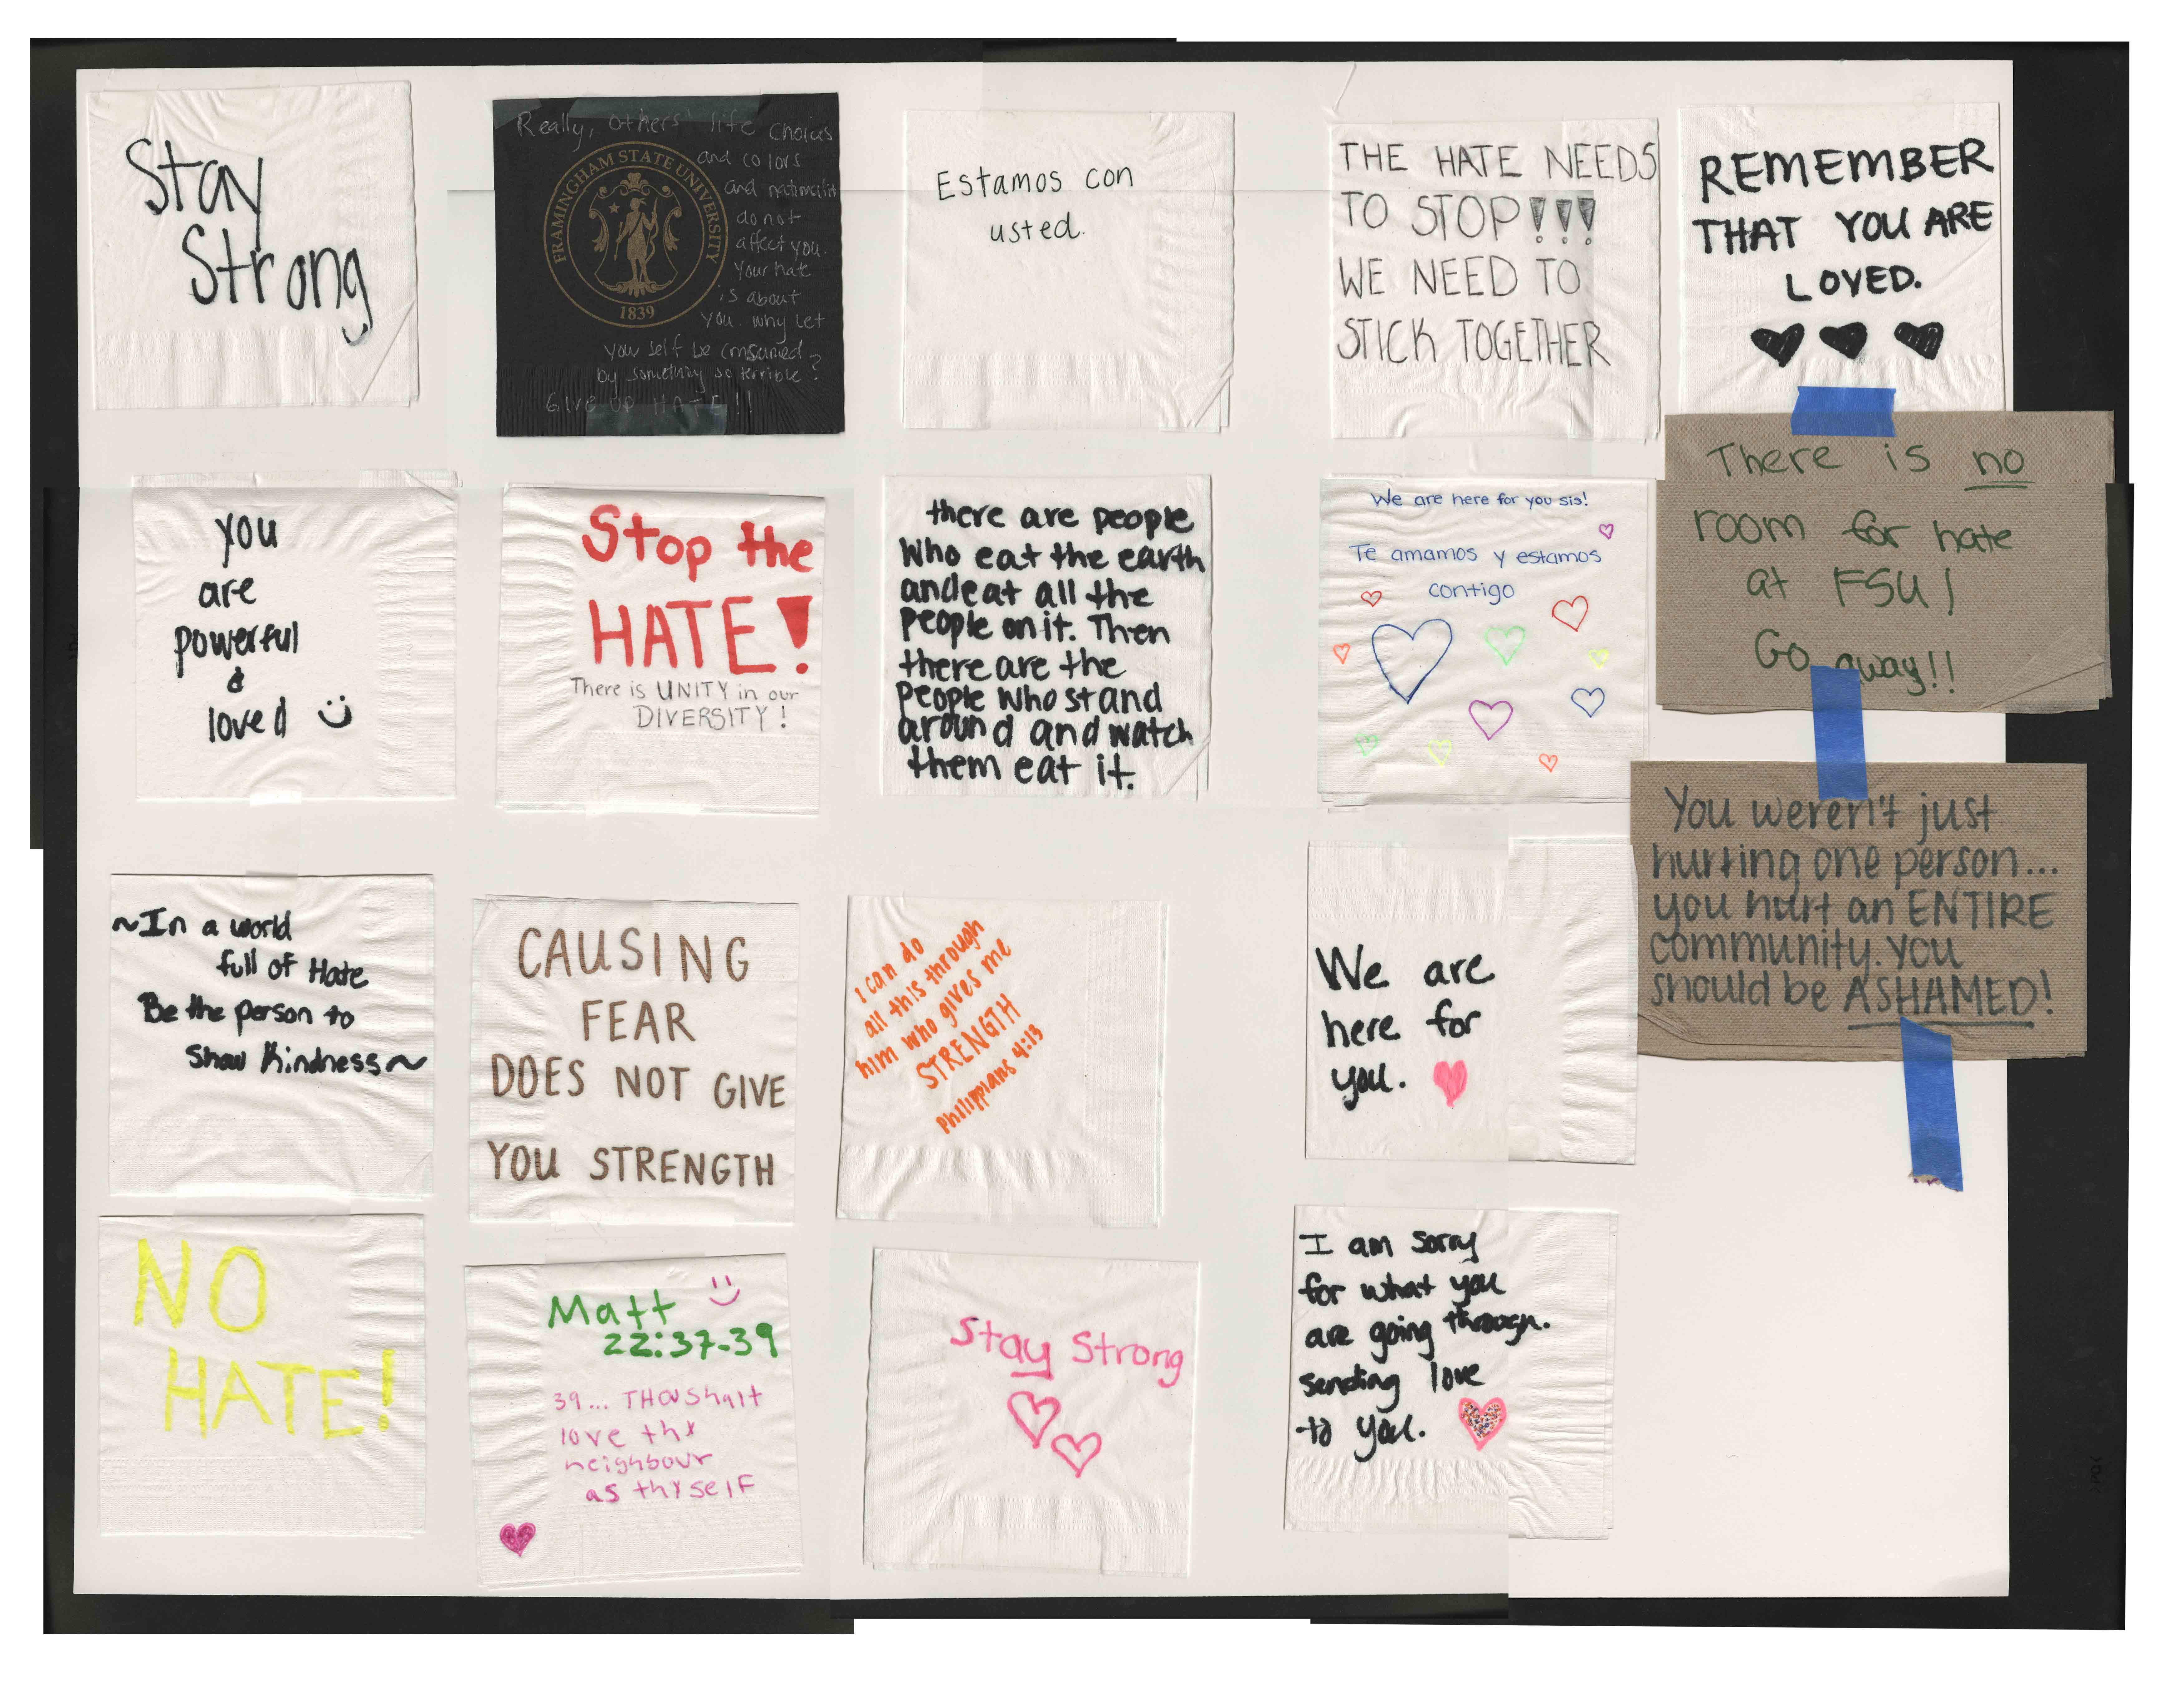 Stay
Strong
Really, others' life choices
and colors
and nationalit
do not
affect you.
Your hate
is about
you. why let
you self be consumed
by something so terrible?
GIVE UP HATE!!
FRAMINGHAM STATE UNIVERSITY
1839
Estamos con
usted.
THE HATE NEEDS
TO STOP!!!
WE NEED TO
STICK TOGETHER
REMEMBER
THAT YOU ARE
LOVED.
There is no
room for hate
at FSU!
Go away!!
you
are
powerful
&
loved
Stop the
HATE!
There is UNITY in our
DIVERSITY!
there are people
who eat the earth
and eat all the
people on it. Then
there are the
people who stand
around and watch
them eat it.
We are here for you sis!
Te amamos y estamos
contigo
You weren't just
hurting one person...
you hurt an ENTIRE
community. You
should be ASHAMED!
~In a world
full of Hate
Be the person to
Show Kindness~
CAUSING
FEAR
DOES NOT GIVE
YOU STRENGTH
I can do
all this through
him who gives me
STRENGTH
Philippians 4:13
We are
here for
you.
NO
HATE!
Matt
22:37-39
39... THOU shalt
love thy
neighbour
as thyself
Stay Strong
I am sorry
for what you
are going through.
sending love
to you.